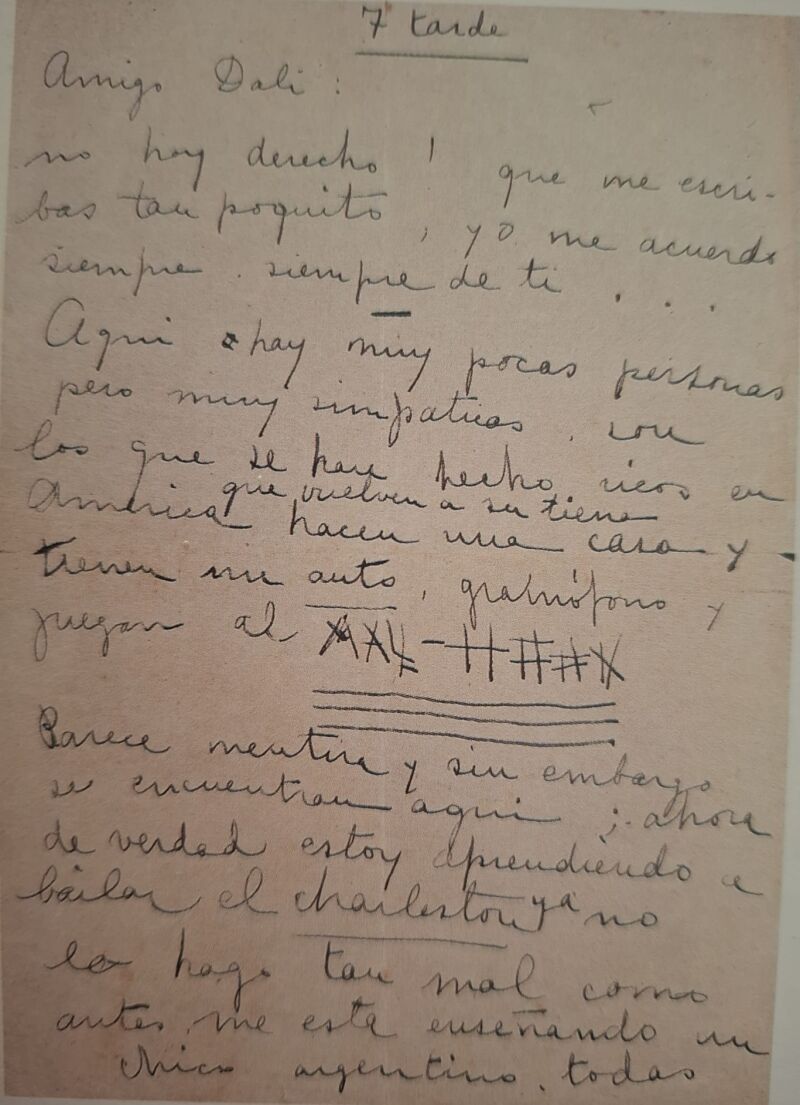 7 tarde
Amigo Dali :
no hay derecho ! que me escri-
bas tan poquito , yo me acuerdo
siempre . siempre de ti . . .
Aqui hay muy pocas personas
pero muy simpaticas . son
los que se han hecho ricos en
que vuelven a su tierra
America hacen una casa y
tienen un auto , gramófono y
juegan al
Parece mentira y sin embargo
se encuentran aqui ; ahora
de verdad estoy aprendiendo a
bailar el charleston ya no
lo hago tan mal como
antes, me esta enseñando un
chico argentino . todas